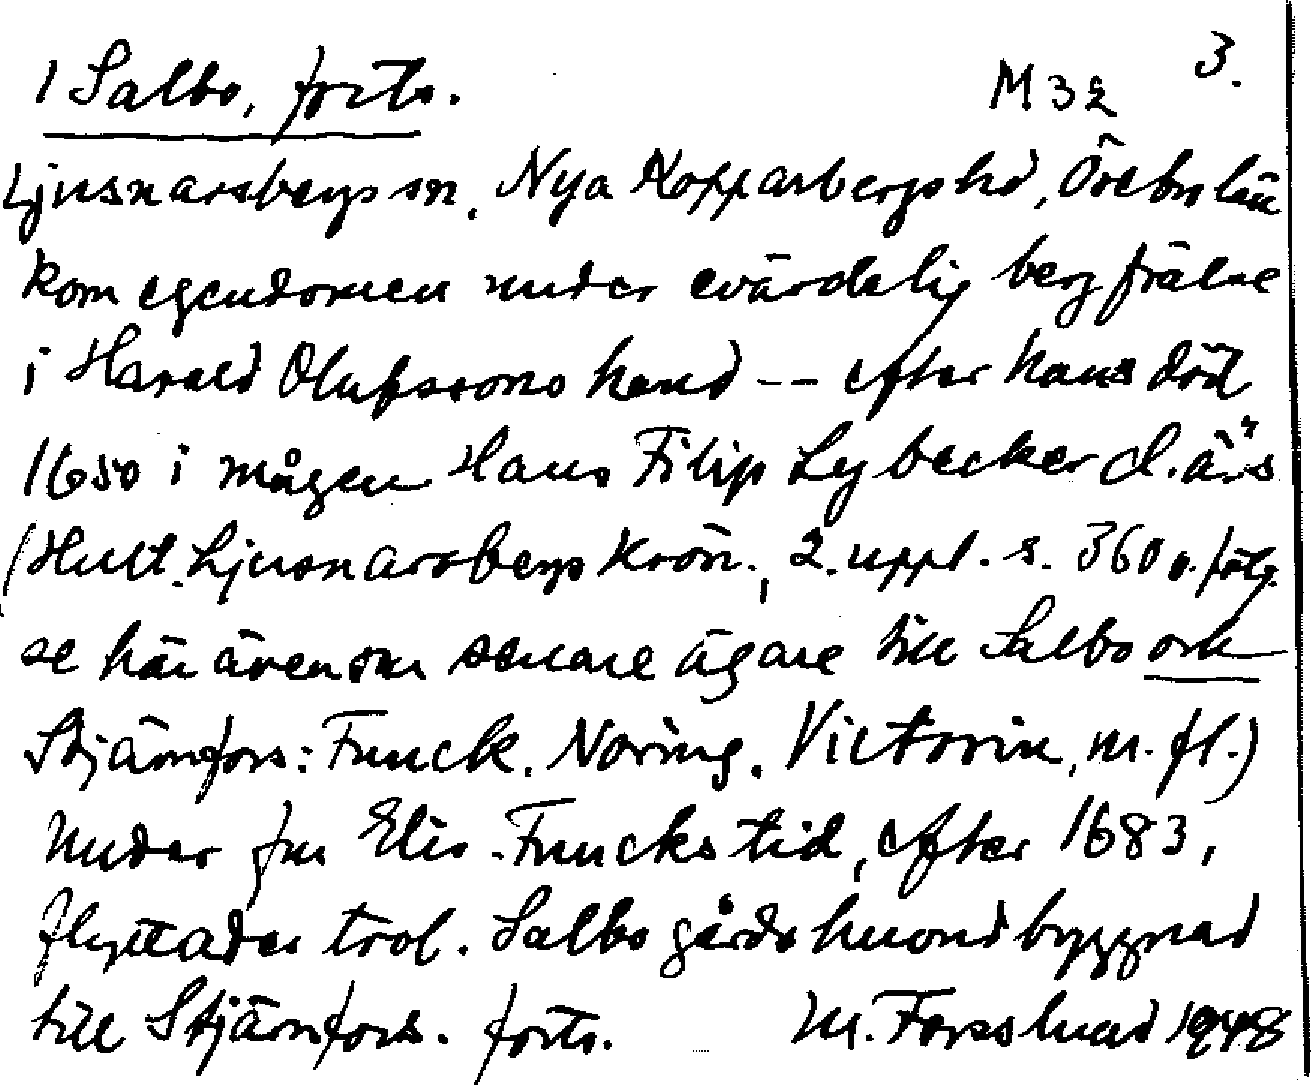 1 Salbo, forts. M 32 3.
Ljusnarsbergs sn, Nya Kopparbergs hd, Örebro län
kom egendomen under evärdelig bergfrälse
i Harald Olufssons hand -- efter hans död
1650 i mågen Hans Filip Lybecker d.ä:s
(Hult. Ljusnarsbergs krön., 2. uppl. s. 360 o. följ.
se här även om senare ägare till Salbo och
Stjärnfors: Funck, Noring, Victorin, m. fl.)
Under fru Elis. Funcks tid, efter 1683,
flyttades trol. Salbo gårds huvudbyggnad
till Stjärnfors. forts. M. Forsslund 1948